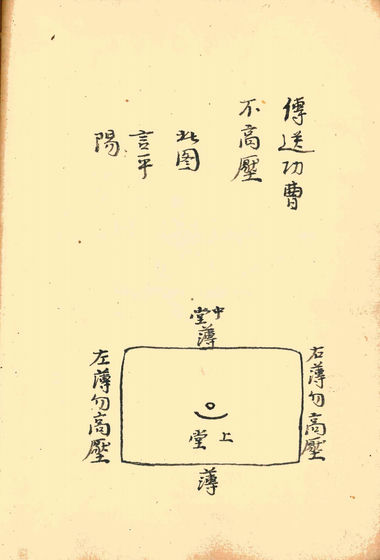 傳送功曹
不高壓
此图
言平
陽
中
堂
薄
右薄勿高壓
左薄勿高壓
上
堂
薄